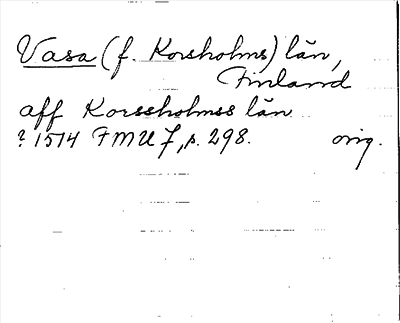 Vasa (f. Korsholms) län,
Finland
aff Korssholmss län
? 1514 FMU 7, p. 298. orig.